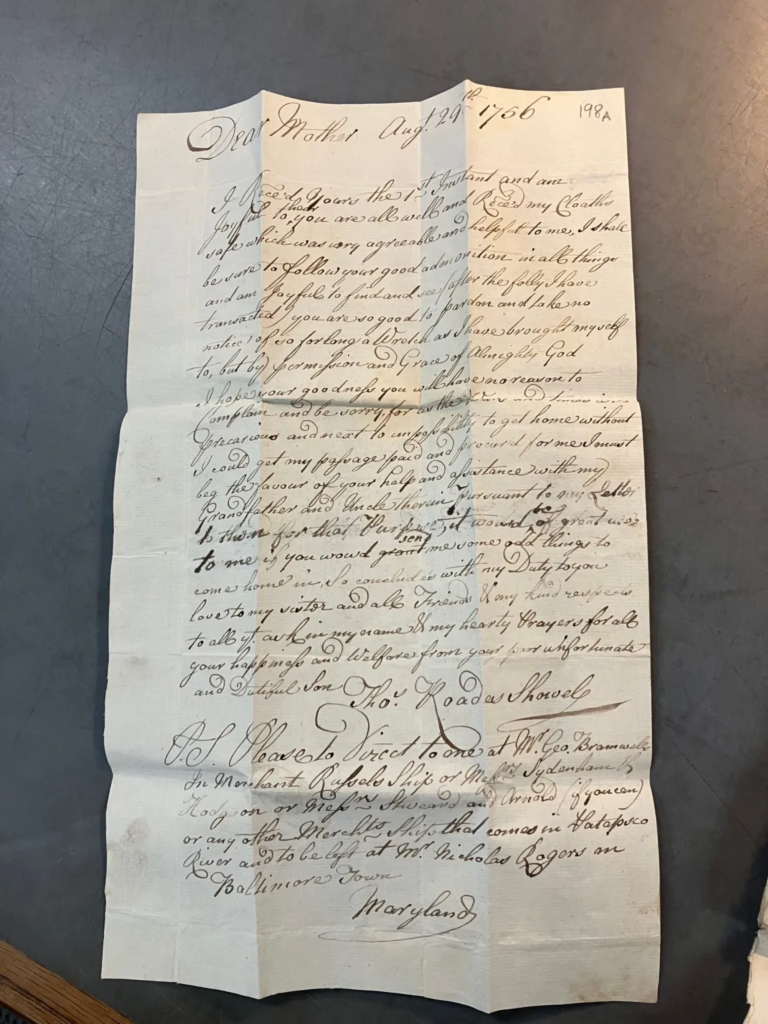 Dear Mother Augt. 29th 1756 198A
I Rece'd Yours the 1st Instant and am
Joyful to hear you are all well and Rece'd my Cloaths
safe which was very agreeable and helpful to me, I shall
be sure to follow your good admonition in all things
and am Joyful to find and see (after the folly I have
transacted) you are so good to pardon and take no
notice of so for long a Wretch as I have brought myself
to, but by permission and Grace of Almighty God
I hope your goodness you will have no reason to
Complain and be sorry, for as the and times is
precarious and next to impossibility to get home without
I could get my passage paid and procur'd for me I must
beg the favour of your help and assistance with my
Grandfather and Uncle therein Pursuant to my Letter
to them for that Purpose, it would be of great use
to me if you woud grant send me some odd things to
come home in, So conclude with my Duty to you
love to my sister and all Friends & my kind respects
to all yt. ask in my name & my hearty Prayers for all
your happiness and Welfare from your poor unfortunate
and Dutiful Son Thos. Roadas Showel
P.S. Please to Direct to me at Mr. Geo. Bramwells
In Merchant Russels Ship or Messrs. Sydenham &
Hodgson or Messrs. and Arnold (if you can)
or any other Merchts. Ship that comes in Patapsco
River and to be left at Mr. Nicholas Rogers in
Baltimore Town
Maryland